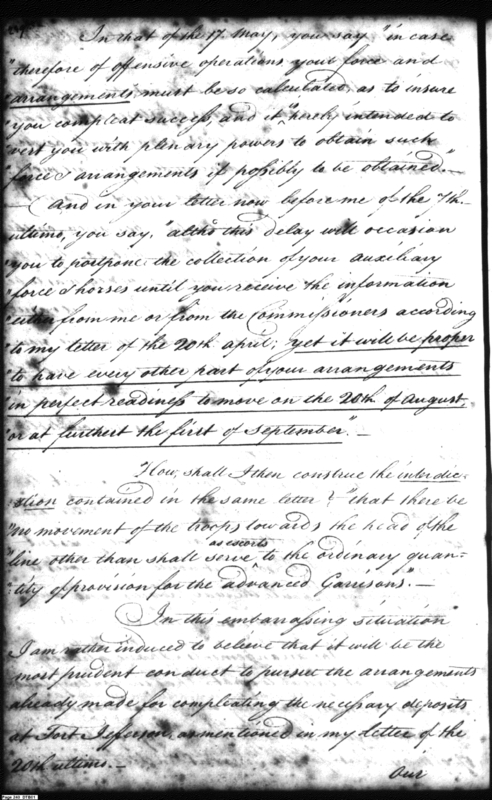 In that of the 17 May, you say "in case
"therefore of offensive operations your force and
"arrangements must be so calculated, as to insure
"you compleat success, and it "hereby intended to
"vest you with plenary powers to obtain such
"force & arrangements if possibly to be obtained."—
—And in your letter now before me of the 7th
ultimo, you say. "altho' this delay will occasion
"you to postpone the collection of your auxiliary
"force & horses until you receive the information
"either from me or from the Commissioners according
"to my letter of the 20th April; yet it will be proper
"to have every other part of your arrangements
"in perfect readiness to move on the 20th of August,
"or at furthest the first of September".—
How, shall I then construe the interdic-
-ction contained in the same letter? "that there be
"no movement of the troops towards the head of the
as escorts
"line other than shall serve ^ to the ordinary quan-
-tity of provision for the advanced Garrisons".—
In this embarrassing situation
I am rather induced to believe that it will be the
most prudent conduct to pursue the arrangements
already made for compleating the necessary deposits
at Fort Jefferson, as mentioned in my letter of the
20th ultimo.—
Our